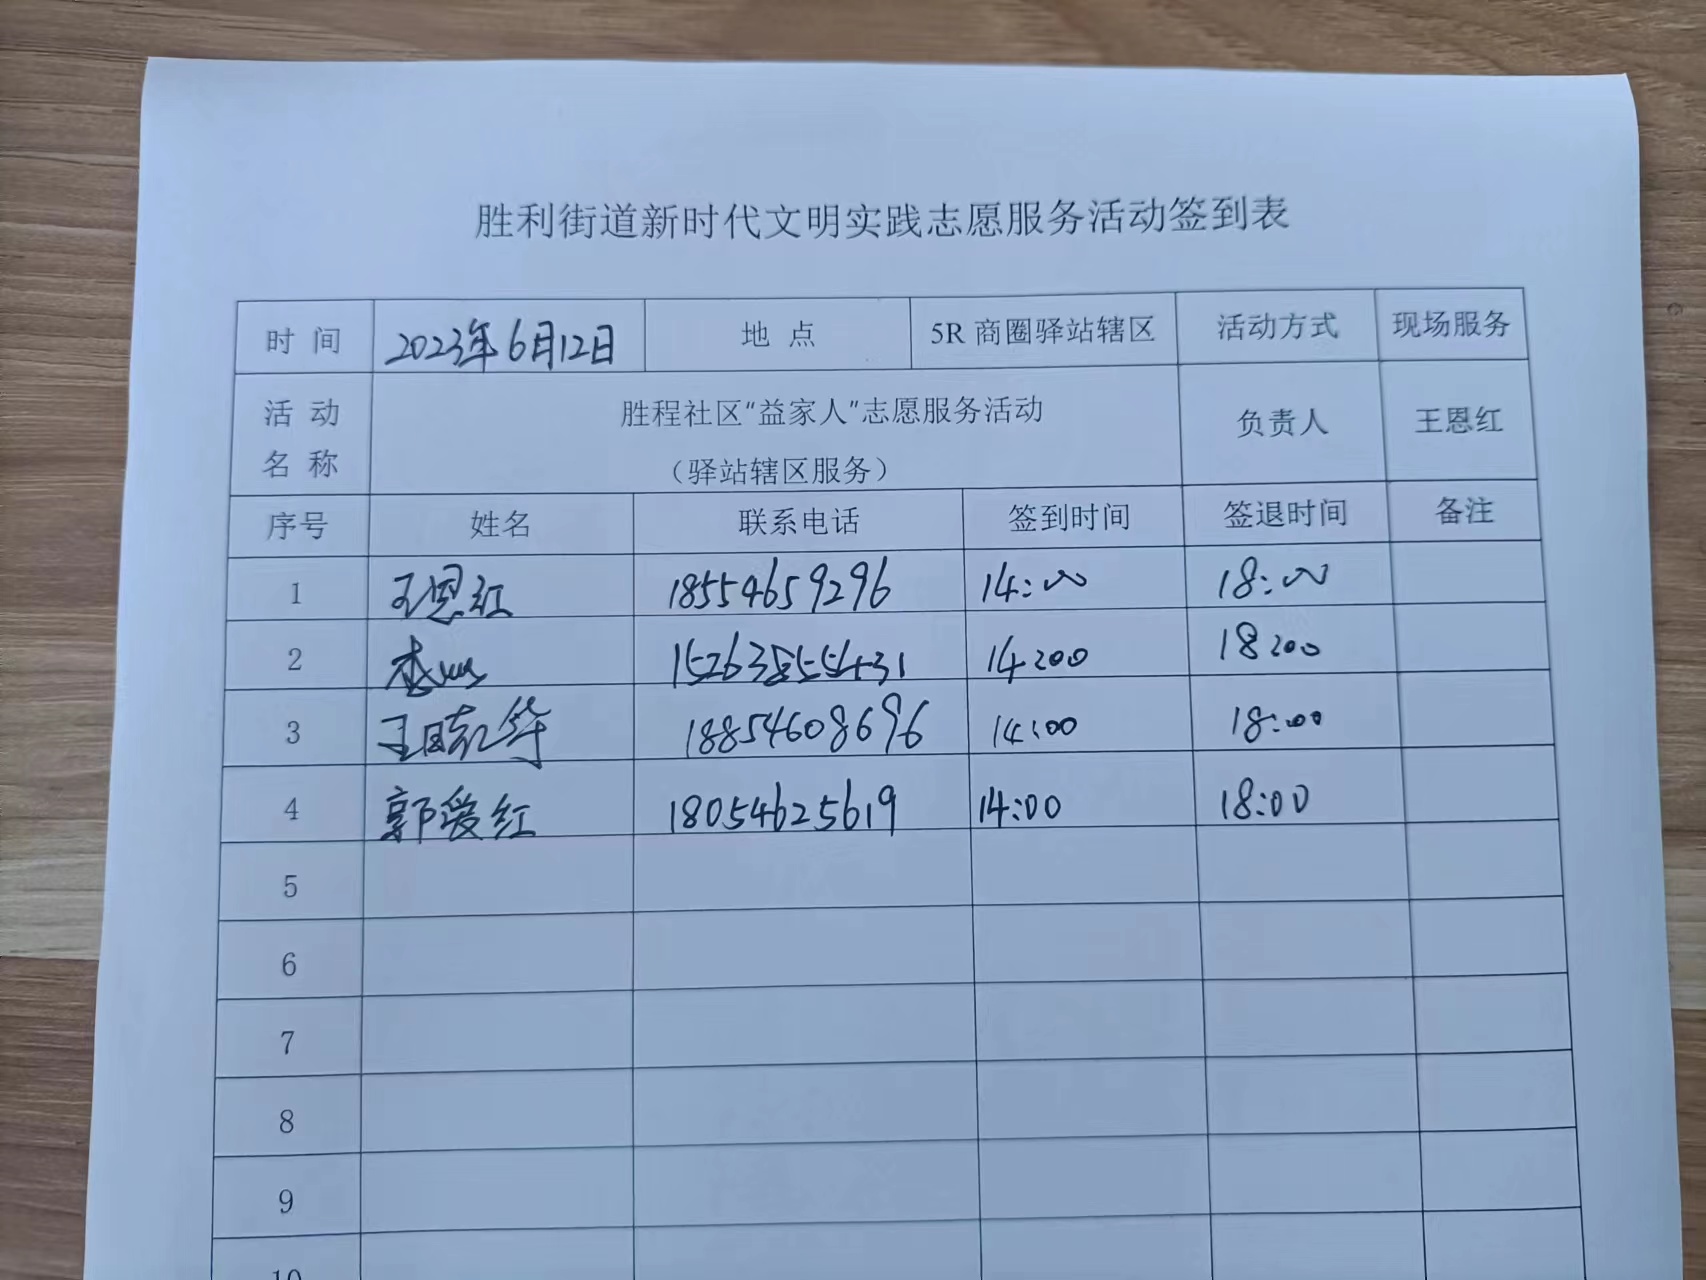 胜利街道新时代文明实践志愿服务活动签到表
时 间 2023年6月12日 地 点 5R 商圈驿站辖区 活动方式 现场服务
活 动 名 称 胜程社区“益家人”志愿服务活动 （驿站辖区服务） 负责人 王恩红
序号 姓名 联系电话 签到时间 签退时间 备注
1 王恩红 18554659296 14:00 18:00
2 14:00 18:00
3 18854608696 14:00 18:00
4 郭爱红 18054625619 14:00 18:00
5
6
7
8
9
10